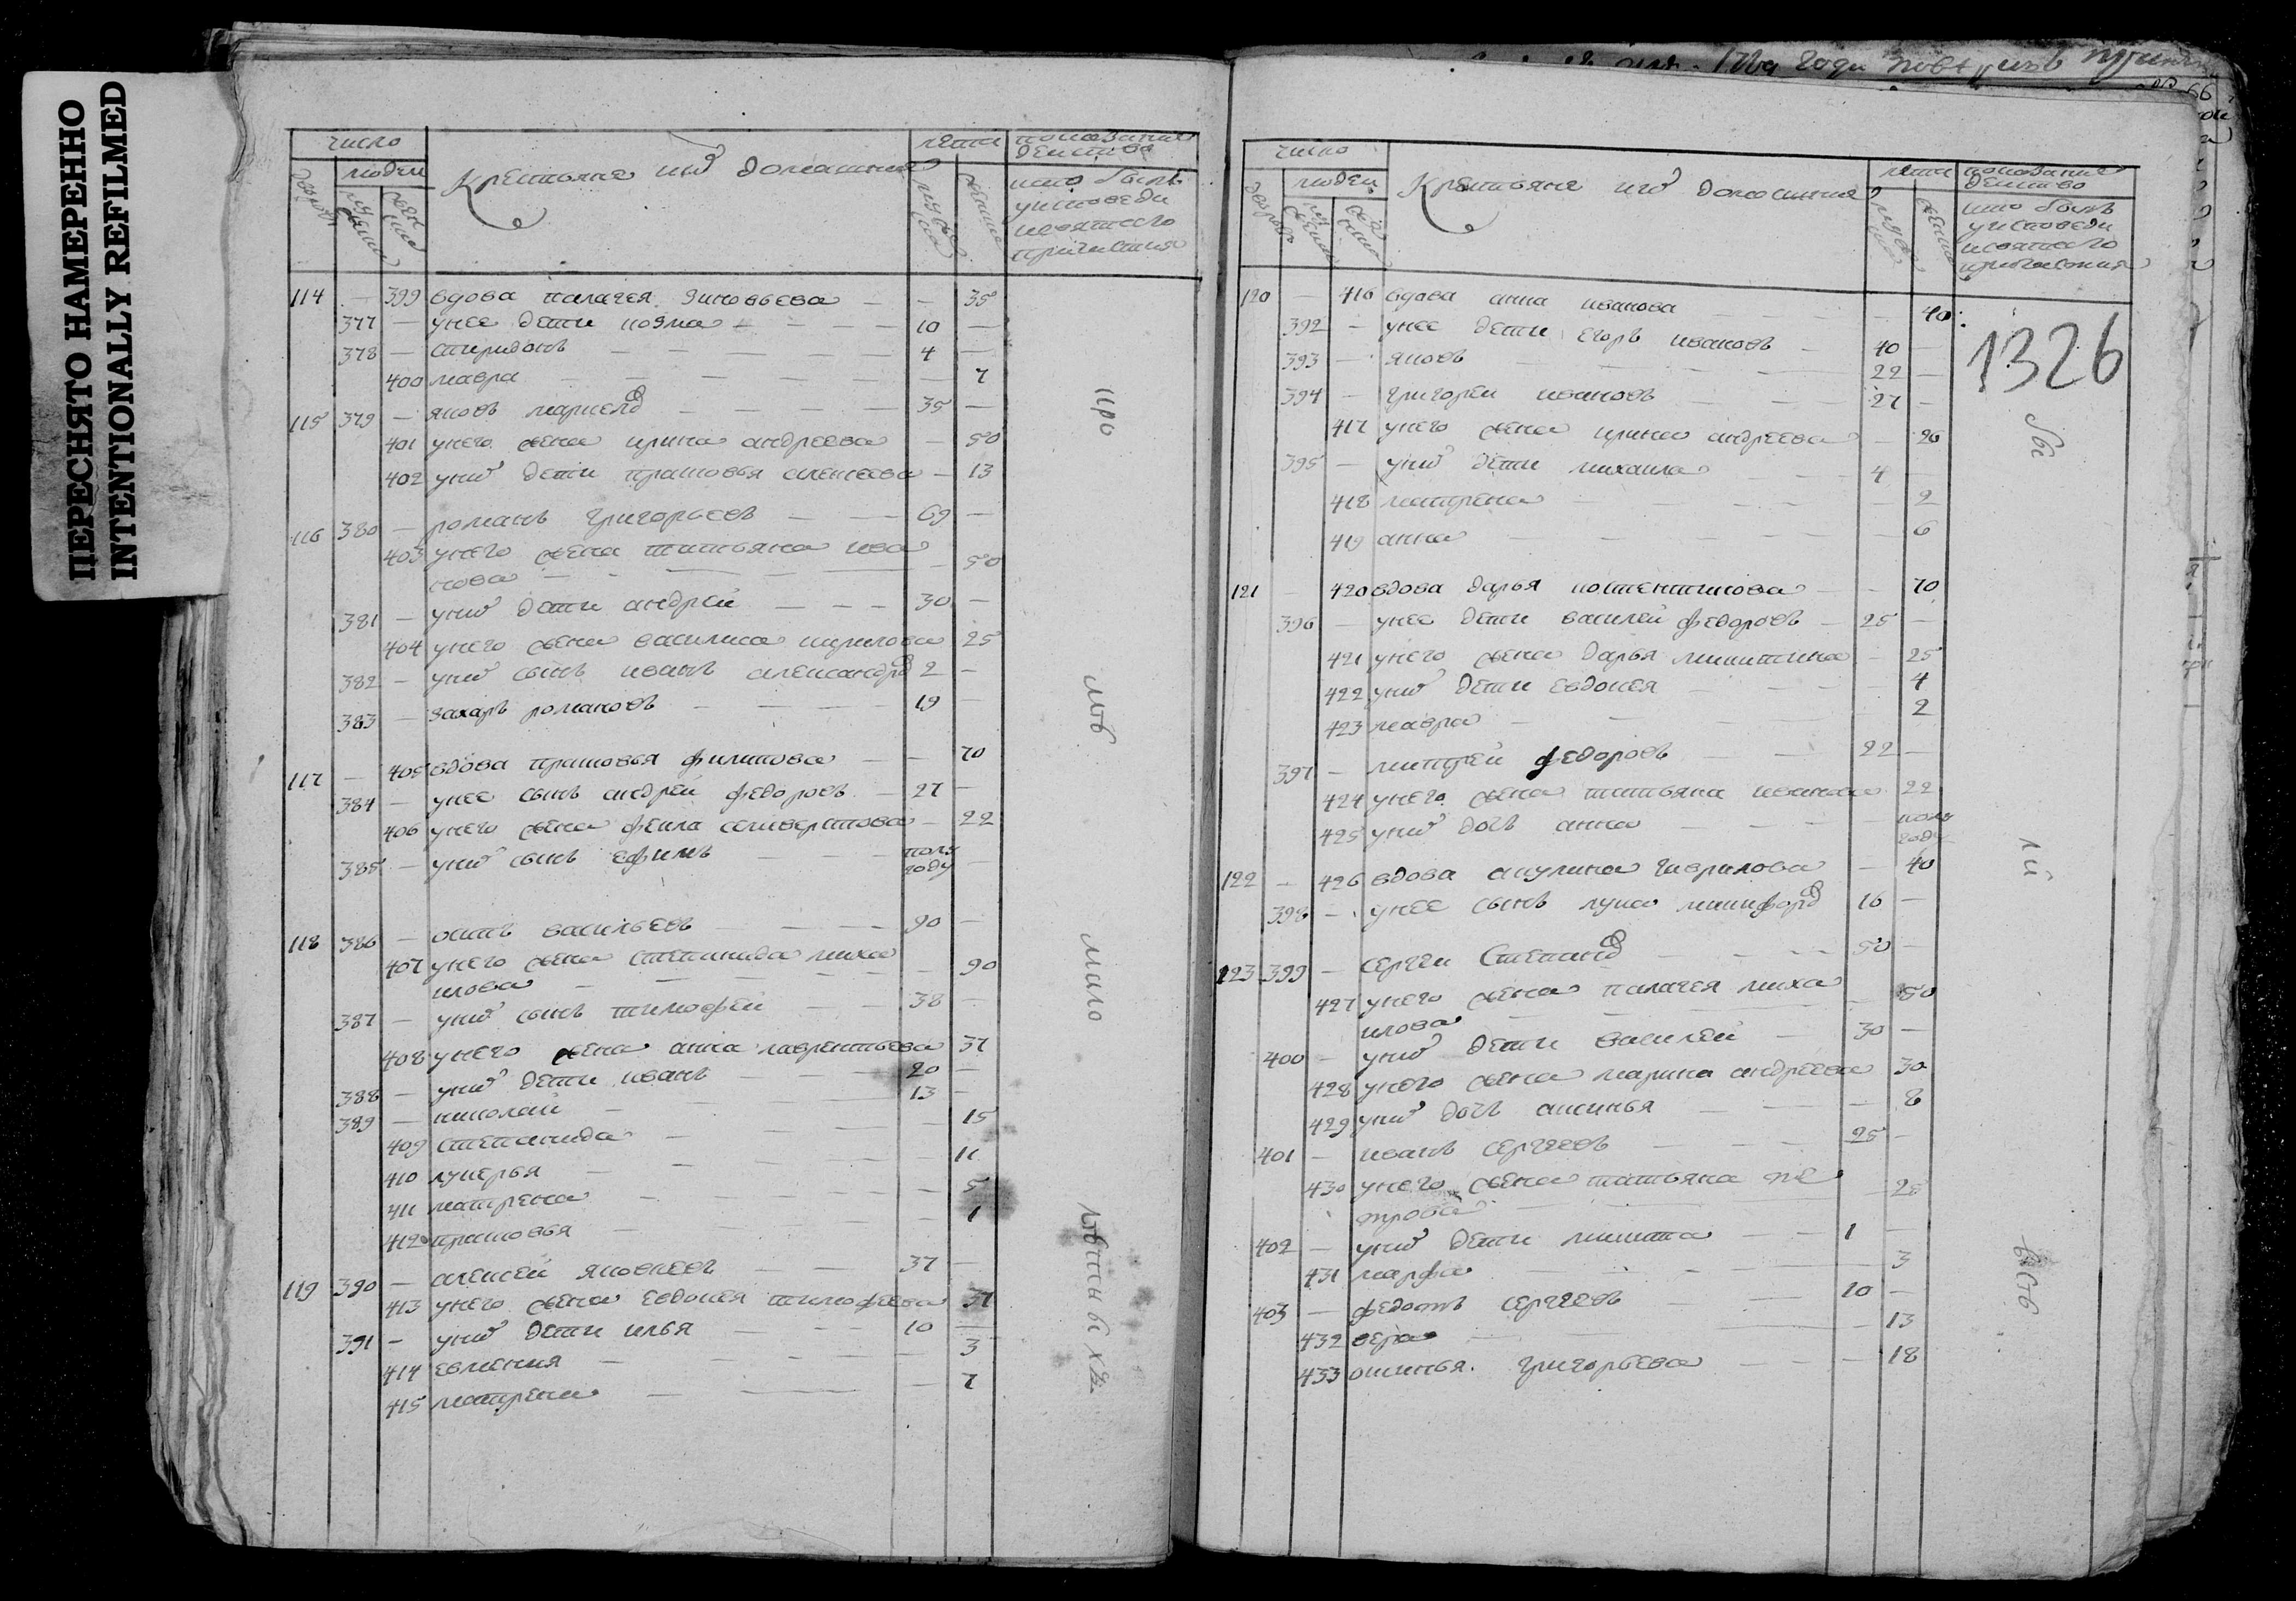 ПЕРЕСНЯТО НАМЕРЕННО
INTENTIONALLY REFILMED
число
людеи
лѣта
показание
Крестьяня ихъ домашния
кто былъ
уисповеди
исвятаго
причастия
114 — 399 вдова палагея зиновьева — — 35
377 — унее дети козма — 10 —
378 — спиридонъ — 4 —
400 мавра — — 7
115 379 — яковъ — 35 —
401 унего жена ирина андреева — 50
402 унихъ дети прасковья алексеева — 13
116 380 — романъ григорьевъ — 69 —
403 унего жена татьяна ива
нова — — 50
381 — унихъ дети андрей — 30 —
404 унего жена василиса кирилова 25
382 — унихъ сынъ иванъ александръ 2 —
383 — захаръ романовъ — 19
117 — 405 вдова прасковья филипова — — 70
384 — унее сынъ андрей федоровъ — 27 —
406 унего жена фекла селиверстова — 22
385 — унихъ сынъ ефимъ — полу
году —
118 386 — осипъ васильевъ — 90 —
407 унего жена степанида миха
илова — — 90
387 — унихъ сынъ тимофей — 38 —
408 унего жена анна лаврентьева 37
388 — унихъ дети иванъ — 20 —
389 — николай — 13 —
409 степанида — 15
410 лукерья — — 11
411 матрена — — 5
412 прасковья — — 1
119 390 — алексей яковлевъ — 37 —
413 унего жена евдокея тимофеева 37
391 — унихъ дети илья — 10 —
414 евгения — — 3
415 матрена — — 7
число
людеи
лѣта показание
Крестьяня ихъ домашния
кто былъ
уисповеди
исвятаго
причастия
1326
120 — 416 вдова анна иванова — — 40
392 — унее дети егоръ ивановъ — 40 —
393 — яковъ — 22 —
394 — григореи ивановъ — 27 —
417 унего жена ирина андреева — 26
395 — унихъ дети михаила — 4 —
418 матрена — — 2
419 анна — — 6
121 — 420 вдова дарья костентинова — — 70
396 — унее дети василей федоровъ — 25 —
421 унего жена дарья микитина — 25
422 унихъ дети евдокея — — 4
423 мавра — 2
397 — митрей федоровъ — 22 —
424 унего жена татьяна иванова 22
425 унихъ дочь анна — — полу
году
122 — 426 вдова акулина гаврилова — 40
398 — унее сынъ лука — 16 —
123 399 — сергеи Степановъ — 50 —
427 унего жена палагея миха
илова — — 50
400 — унихъ дети василей — 30 —
428 унего жена марина андреева 30
429 унихъ дочь аксинья — — 8
401 — иванъ сергеевъ — 25 —
430 унего жена татьяна пе
трова — — 25
402 — унихъ дети микита — 1 —
431 марфа — — 3
403 — федотъ сергеевъ — 10 —
432 вера — — 13
433 аксинья григорьева — — 18